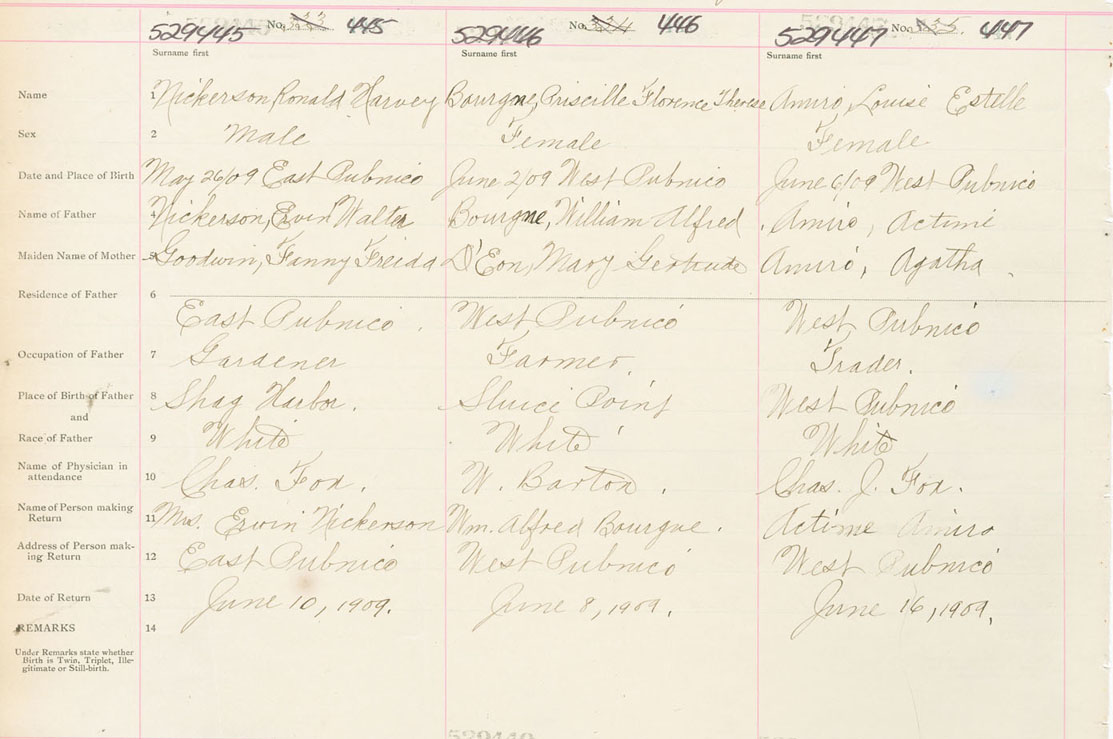 529445 No. 333 445 529446 No. 334 446 529447 No. 335. 447
Surname first Surname first Surname first
Name 1 Nickerson, Ronald Harvey Bourgne, Priscille Florence Therese Amiro, Louise Estelle
Sex 2 Male Female Female
Date and Place of Birth May 26/09 East Pubnico June 2/09 West Pubnico June 6/09 West Pubnico
Name of Father 4 Nickerson, Ervin Walter Bourgne, William Alfred. Amiro, Actime
Maiden Name of Mother 5 Goodwin, Fanny Freida D'Eon, Mary Gertrude Amiro, Agatha.
Residence of Father 6
East Pubnico. West Pubnico West Pubnico
Occupation of Father 7 Gardener Farmer. Trader.
Place of Birth of Father 8 Shag Harbor. Sluice Point West Pubnico
and
Race of Father 9 White White White
Name of Physician in
attendance 10 Chas. Fox. W. Barton. Chas. J. Fox.
Name of Person making
Return 11 Mrs. Ervin Nickerson Wm. Alfred Bourgne. Actime Amiro
Address of Person mak-
ing Return 12 East Pubnico West Pubnico West Pubnico
Date of Return 13 June 10, 1909. June 8, 1909. June 16, 1909.
REMARKS 14
Under Remarks state whether
Birth is Twin, Triplet, Ille-
gitimate or Still-birth.